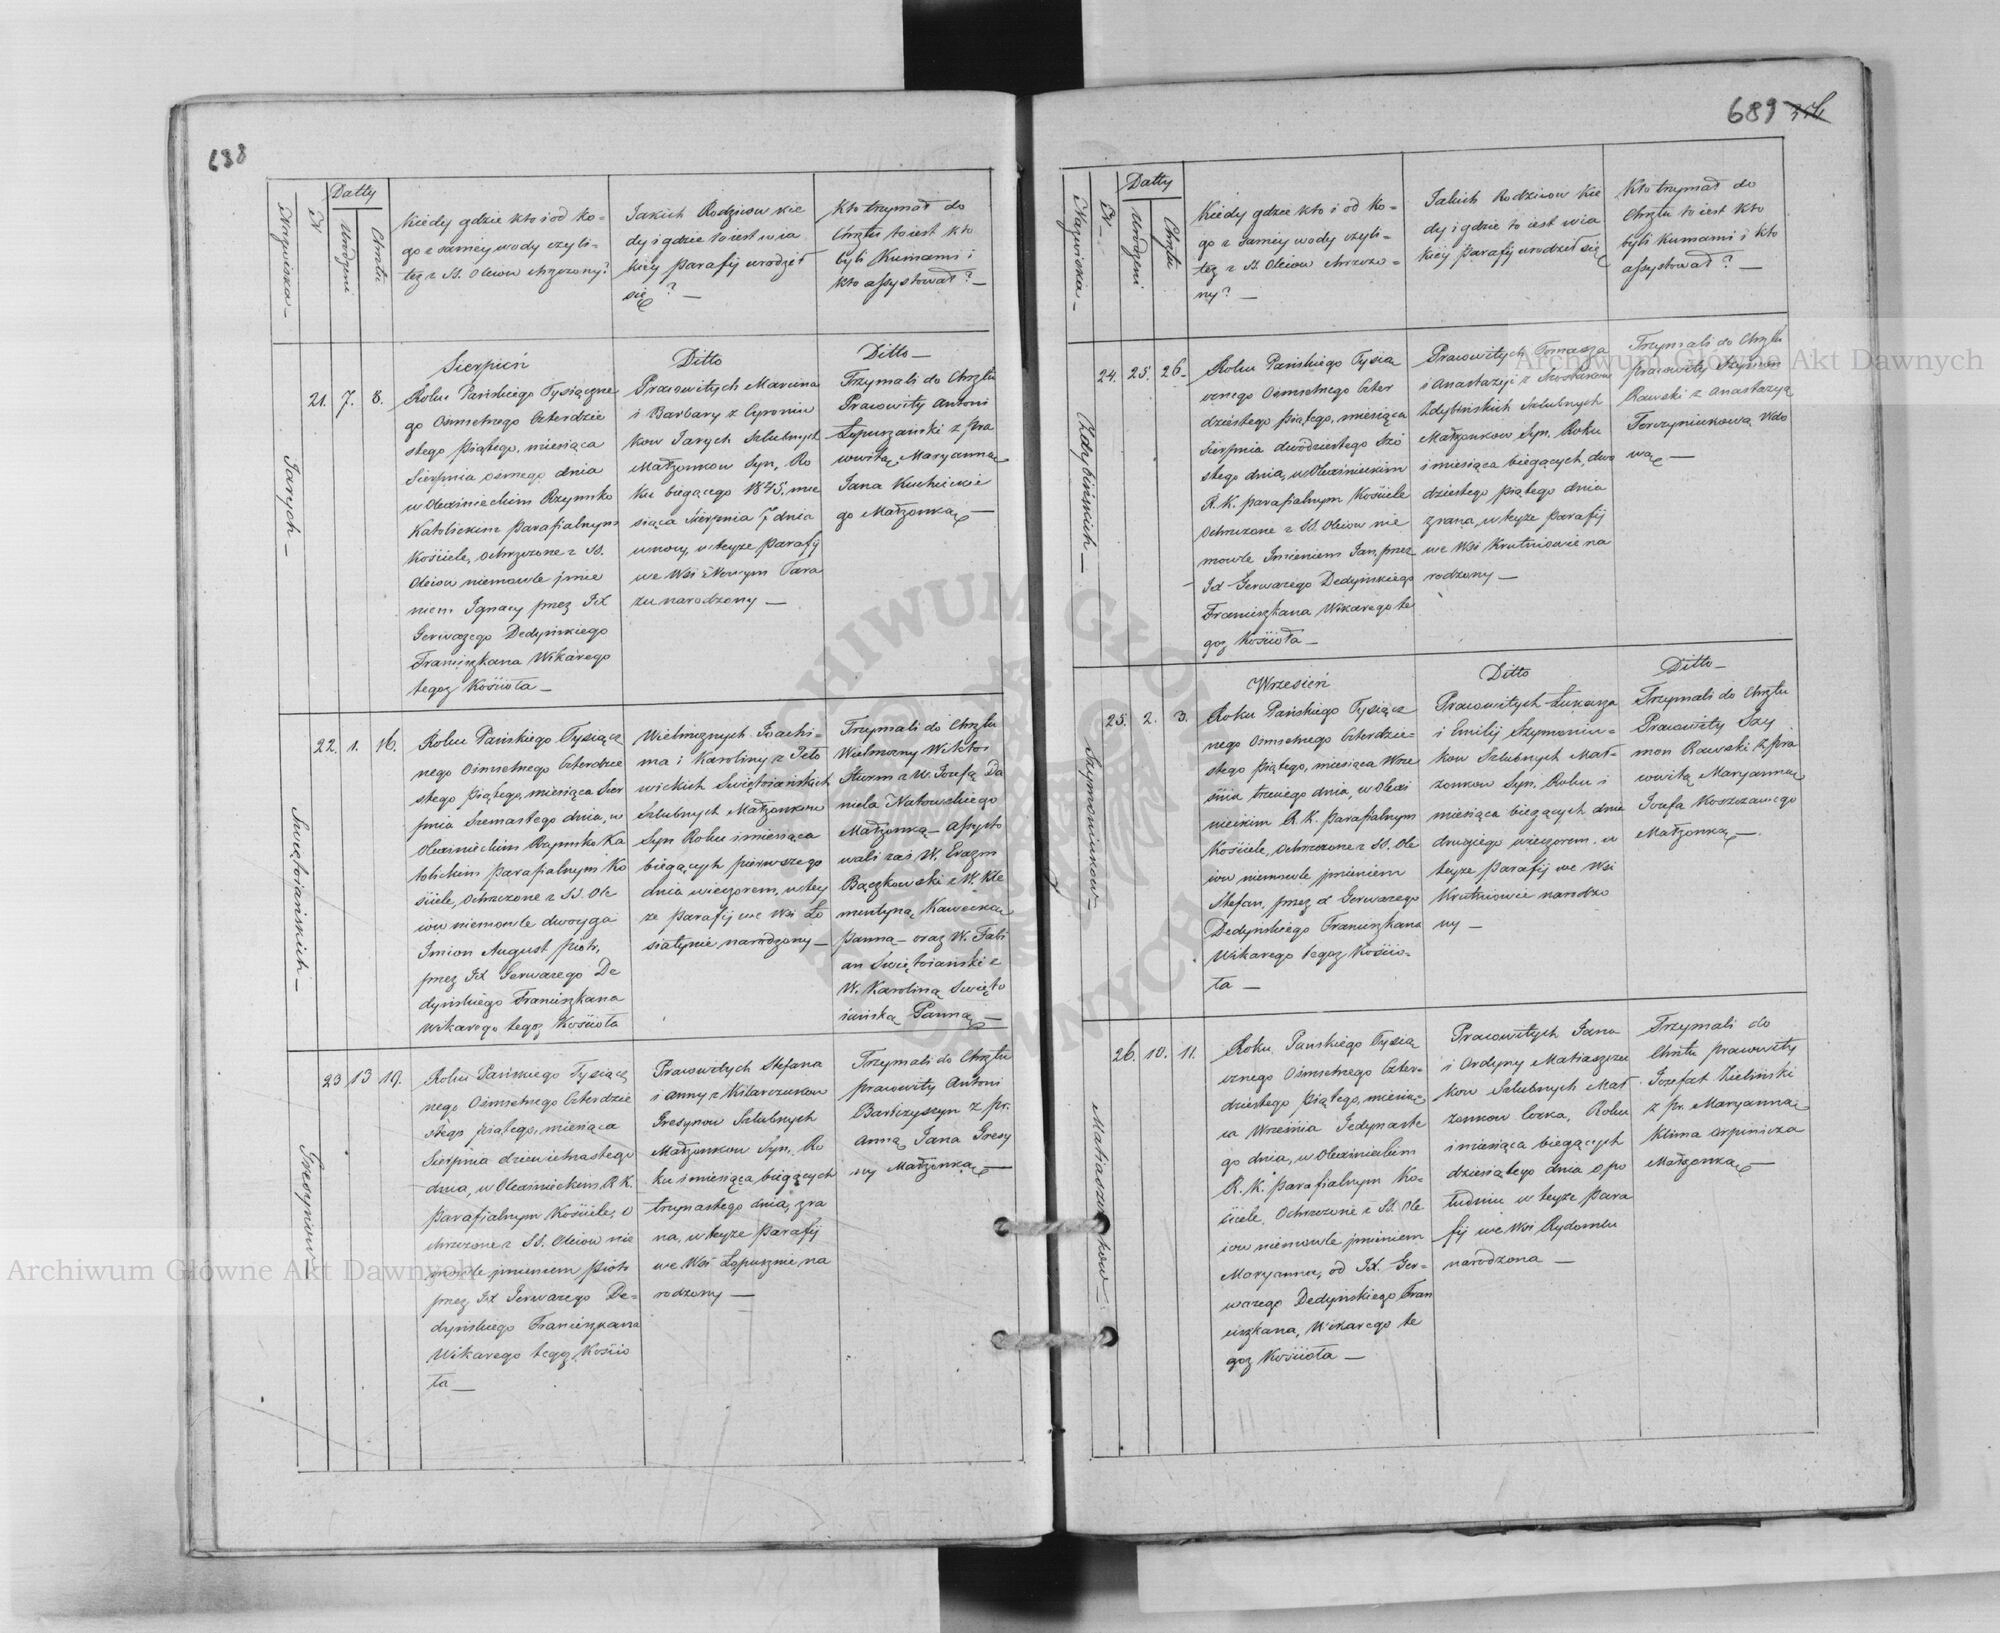 638
Nazwiska —
N
Datty
Urodzeni
Chrztu
Kiedy gdzie kto i od ko=
go z samey wody czyli=
też z SS. Oleiow chrzczony?
Jakich Rodzicow kie
dy i gdzie to iest w ia
kiey Parafij urodził
się? —
Kto trzymał do
Chrztu to iest kto
byli Kumami i
kto assystował? —
Jarych —
21. 7. 8.
Sierpień
Roku Pańskiego Tysiączne
go Osmsetnego Czterdzie
stego piątego, miesiąca
Sierpnia osmego dnia
w Olexinieckim Rzymsko
Katolickim parafialnym
Kościele, ochrzczone z SS.
Oleiow niemowle jmie
niem Jgnacy przez JX
Gerwazego Dedyńskiego
Franciszkana Wikarego
tegoż Kościoła —
Ditto
Pracowitych Marcina
i Barbary z Cyroniu
kow Jarych szlubnych
Małżonkow Syn, Ro
ku biegącego 1845. mie
siąca Sierpnia 7 dnia
w nocy, w teyże parafij
we Wsi Nowym Tara
zu narodzony —
Ditto —
Trzymali do Chrztu
Pracowity Antoni
Łopuszański z pra
cowitą Maryanną
Jana Kuchcickie
go Małżonką —
Swiętoiańskich —
22. 1. 16.
Roku Pańskiego Tysiącz
nego Osmsetnego Czterdzie
stego piątego, miesiąca Sier
pnia Szesnastego dnia, w
Olexinieckim Rzymsko Ka
tolickim parafialnym Ko
ściele, ochrzczone z SS. Ole
iow niemowle dwoyga
Jmion August Piotr,
przez JX Gerwazego De
dyńskiego Franciszkana
Wikarego tegoż Kościoła
Wielmożnych Joachi=
ma i Karoliny z Peto
wickich Swiętoiańskich
szlubnych Małżonkow
Syn Roku i miesiąca
biegących pierwszego
dnia wieczorem, w tey
że parafij we Wsi Ło
siatynie narodzony —
Trzymali do Chrztu
Wielmożny Wiktor
Sturm z W. Jozefą Da
niela Natowskiego
Małżonką — assysto
wali zaś W. Erazm
Bączkowski z W. Kle
mentyną Kawecką
panną — oraz W. Fabi
an Swiętoiański z
W. Karoliną Swięto
iańską Panną —
Gresynow —
23 13 19.
Roku Pańskiego Tysiącz
nego Osmsetnego Czterdzie
stego piątego, miesiąca
Sierpnia dziewietnastego
dnia, w Olexinieckim R. K.
Parafialnym Kościele, o
chrzczone z SS. Oleiow nie
mowle jmieniem Piotr
przez JX Gerwazego De=
dyńskiego Franciszkana
Wikarego tegoż Kościo
ła —
Pracowitych Stefana
i Anny z Witarczukow
Gresynow szlubnych
Małżonkow Syn, Ro
ku i miesiąca biegących
trzynastego dnia, z ra
na, w teyże Parafij
we Wsi Łopusznie na
rodzony —
Trzymali do Chrztu
pracowity Antoni
Bartczyszyn z pr.
Anną Jana Gresy
ny Małżonką —
689
Nazwiska —
N —
Datty
Urodzeni
Chrztu
Kiedy gdzie kto i od ko=
go z samey wody czyli=
też z SS. Oleiow chrzczo=
ny? —
Jakich Rodzicow kie
dy i gdzie to iest w ia
kiey Parafij urodził się
Kto trzymał do
Chrztu to iest kto
byli Kumami i kto
assystował? —
Zdybińskich —
24. 25. 26.
Roku Pańskiego Tysią
cznego Osmsetnego Czter
dziestego Piątego, miesiąca
Sierpnia dwódziestego Szó
stego dnia, w Olexinieckim
R. K. parafialnym Kościele
Ochrzczone z SS. Oleiow nie
mowle Jmieniem Jan, przez
JX Gerwazego Dedyńskiego
Franciszkana Wikarego te
goż Kościoła —
Pracowitych Tomasza
i Anastazyi z
Zdybińskich szlubnych
Małżonkow Syn, Roku
i miesiąca biegących, dwu
dziestego piątego dnia
z rana, w teyże Parafij
we Wsi Krutniowie na
rodzony —
Trzymali do Chrztu
pracowity Szymon
Rawski z Anastazyą
Terczyniukową Wdo
wą —
Szymoniukow —
25. 2. 3.
Wrzesień
Roku Pańskiego Tysiącz
nego Osmsetnego Czterdzie=
stego piątego, miesiąca Wrze
śnia trzeciego dnia, w Olexi
nieckim R. K. parafialnym
Kościele, ochrzczone z SS. Ole
iow niemowle jmieniem
Stefan, przez X Gerwazego
Dedyńskiego Franciszkana
Wikarego tegoż Kościo=
ła —
Ditto
Pracowitych Łukasza
i Emilij Szymoniu=
kow szlubnych Mał=
żonkow Syn, Roku i
miesiąca biegących dnia
drugiego wieczorem, w
teyże parafij we Wsi
Krutniowie narodzo
ny —
Ditto —
Trzymali do Chrztu
Pracowity Szy
mon Rawski z pra
cowitą Maryanną
Jozefa Koszczawego
Małżonką —
Matiaszczukow —
26. 10. 11.
Roku Pańskiego Tysią
cznego Osmsetnego Czter=
dziestego Piątego, miesią
ca Września Jedynaste
go dnia, w Olexinieckim
R. K. parafialnym Ko=
ściele, Ochrzczone z SS. Ole
iow niemowle jmieniem
Maryanna, od JX. Ger=
wazego Dedyńskiego Fran
ciszkana, Wikarego te
goż Kościoła —
Pracowitych Jana
i Ordyny Matiaszczu
kow szlubnych Mał
żonkow Corka, Roku
i miesiąca biegących
dziesiątego dnia o po
łudniu w teyże para
fij we Wsi Rydomlu
narodzona —
Trzymali do
Chrztu pracowity
Jozefat Zieliński
z pr. Maryanną
Klima Karpinicza
Małżonką —
Archiwum Główne Akt Dawnych
Archiwum Główne Akt Dawnych
ARCHIWUM GŁÓWNE AKT DAWNYCH